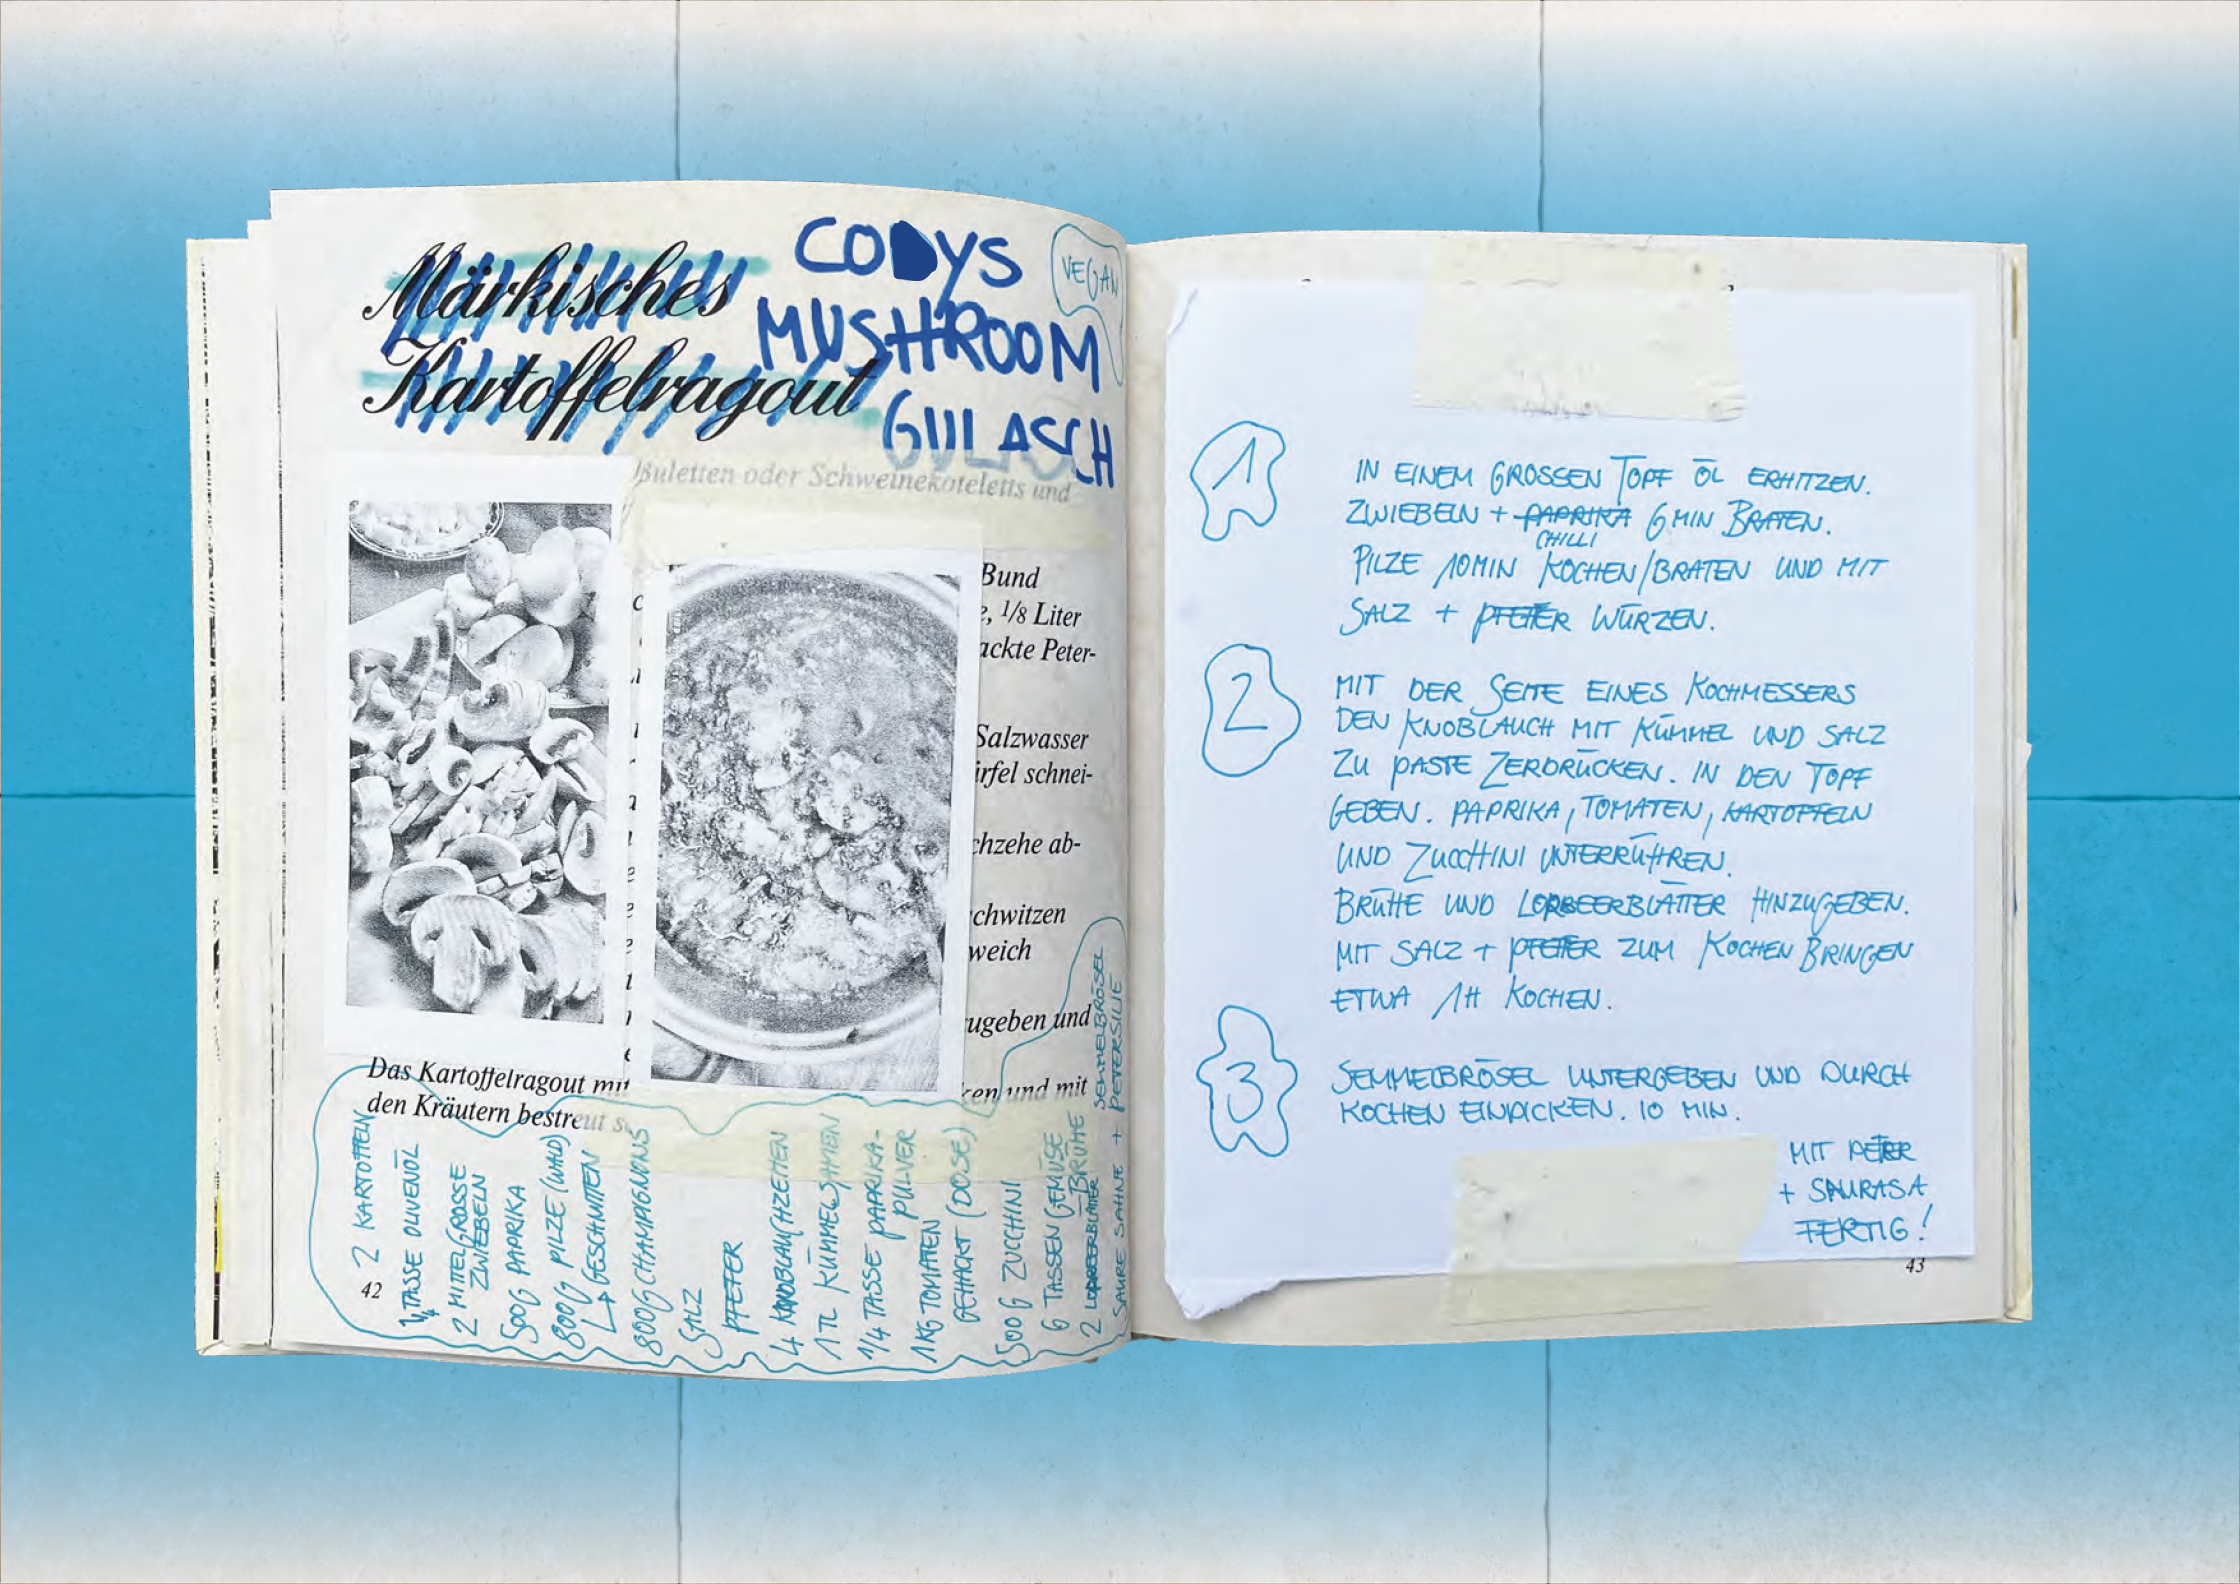 Märkisches
Kartoffelragout
CODYS
MUSHROOM
GULASCH
VEGAN
Buletten oder Schweinekoteletts und
Bund
e, 1/8 Liter
ackte Peter-
Salzwasser
irfel schnei-
chzehe ab-
chwitzen
weich
ugeben und
ken und mit
Das Kartoffelragout mit
den Kräutern bestreut
2 KARTOFFELN
1/4 TASSE OLIVENÖL
2 MITTELGROSSE
ZWIEBELN
500G PAPRIKA
800G PILZE (WALD)
↳ GESCHNITTEN
800G CHAMPIGNONS
SALZ
PFEFFER
4 KNOBLAUCHZEHEN
1TL KÜMMELSAMEN
1/4 TASSE PAPRIKA-
PULVER
1KG TOMATEN
GEHACKT (DOSE)
500G ZUCCHINI
6 TASSEN GEMÜSE
BRÜHE
2 LORBEERBLÄTTER
SEMMELBRÖSEL
SAURE SAHNE + PETERSILIE
42
1
IN EINEM GROSSEN TOPF ÖL ERHITZEN.
ZWIEBELN + PAPRIKA 6 MIN BRATEN.
CHILLI
PILZE 10MIN KOCHEN/BRATEN UND MIT
SALZ + PFEFFER WÜRZEN.
2
MIT DER SEITE EINES KOCHMESSERS
DEN KNOBLAUCH MIT KÜMMEL UND SALZ
ZU PASTE ZERDRÜCKEN. IN DEN TOPF
GEBEN. PAPRIKA, TOMATEN, KARTOFFELN
UND ZUCCHINI UNTERRÜHREN.
BRÜHE UND LORBEERBLÄTTER HINZUGEBEN.
MIT SALZ + PFEFFER ZUM KOCHEN BRINGEN
ETWA 1H KOCHEN.
3
SEMMELBRÖSEL UNTERGEBEN UND DURCH
KOCHEN EINDICKEN. 10 MIN.
MIT PETER
+ SAURASA
FERTIG!
43